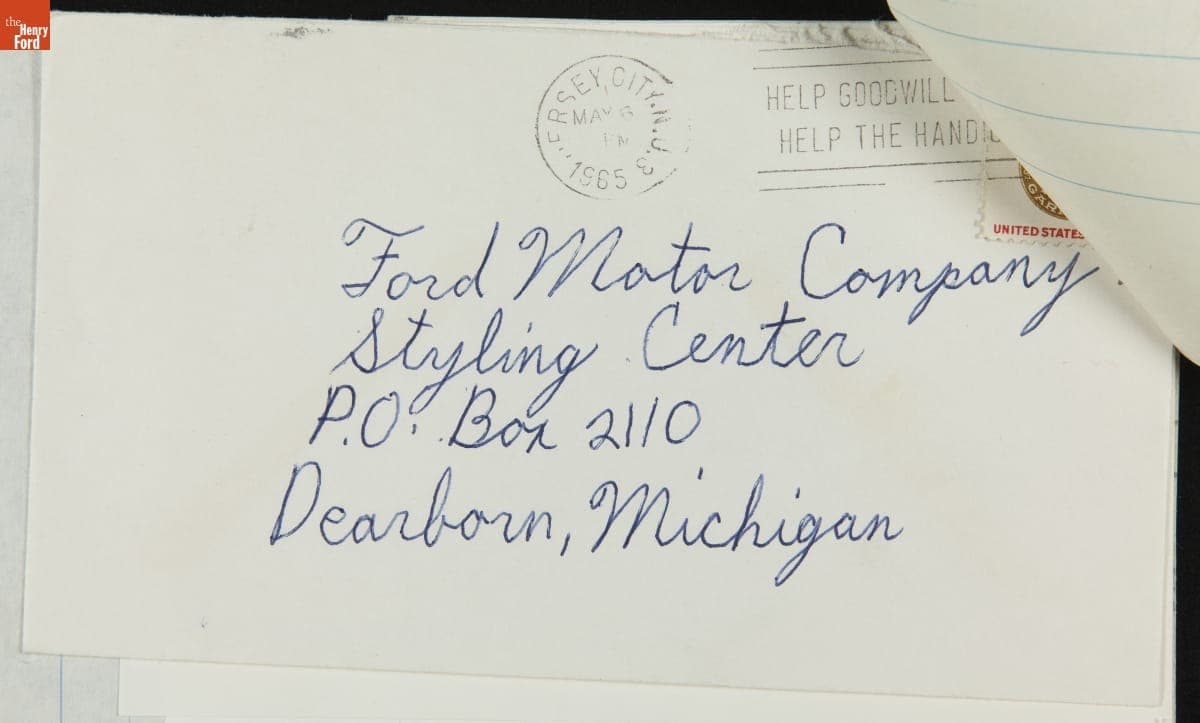 the Henry Ford
JERSEY CITY, N.J.
MAY 6
PM
1965
HELP GOODWILL
HELP THE
UNITED STATES
Ford Motor Company
Styling Center
P.O. Box 2110
Dearborn, Michigan